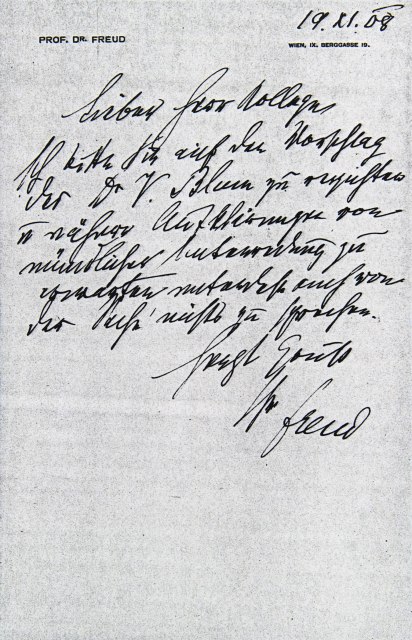 19. XI. 08
PROF. DR. FREUD
WIEN, IX. BERGGASSE 19.
Lieber Herr Kollege
Ich bitte Sie auf den Vorschlag
des Dr V. Blum zu verzichten
u nähere Aufklärungen von
mündlicher Unterredung zu
erwarten unterdeß auch von
der Sache nichts zu sprechen.
Ihr Freud